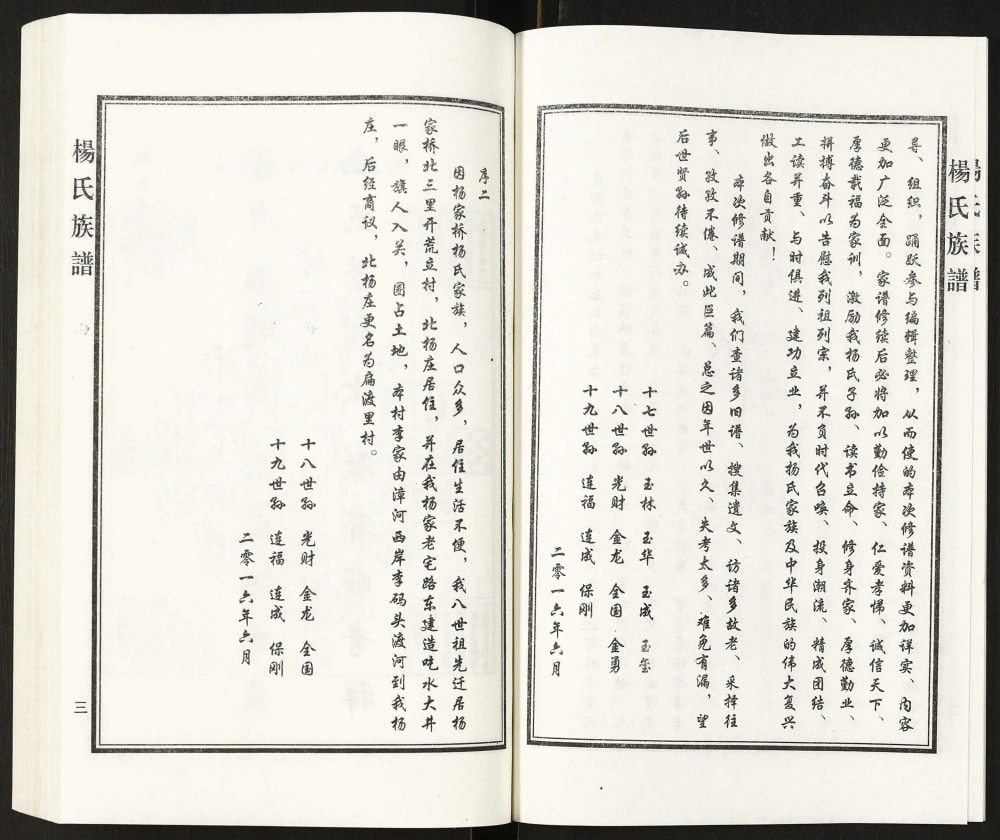 楊氏族譜
导、组织，踊跃参与编辑整理，从而使的本次修谱资料更加详实、内容
更加广泛全面。家谱修续后必将加以勤俭持家、仁爱孝悌、诚信天下、
厚德载福为家训，激励我杨氏子孙、读书立命、修身齐家、厚德勤业、
拼搏奋斗以告慰我列祖列宗，并不负时代召唤、投身潮流、精成团结、
工读并重、与时俱进、建功立业，为我杨氏家族及中华民族的伟大复兴
做出各自贡献！
本次修谱期间，我们查诸多旧谱、搜集遗文、访诸多故老、采择往
事、孜孜不倦、成此巨篇、总之因年世以久、失考太多、难免有漏，望
后世贤孙待续诚亦。
十七世孙 玉林 玉华 玉成 玉玺
十八世孙 光财 金龙 金国 金勇
十九世孙 连福 连成 保刚
二零一六年六月
序二
因杨家桥杨氏家族，人口众多，居住生活不便，我八世祖先迁居杨
家桥北三里开荒立村，北杨庄居住，并在我杨家老宅路东建造吃水大井
一眼，旗人入关，圈占土地，本村李家由漳河西岸李码头渡河到我杨
庄，后经商议，北杨庄更名为扁渡里村。
十八世孙 光财 金龙 金国
十九世孙 连福 连成 保刚
二零一六年六月
楊氏族譜
三